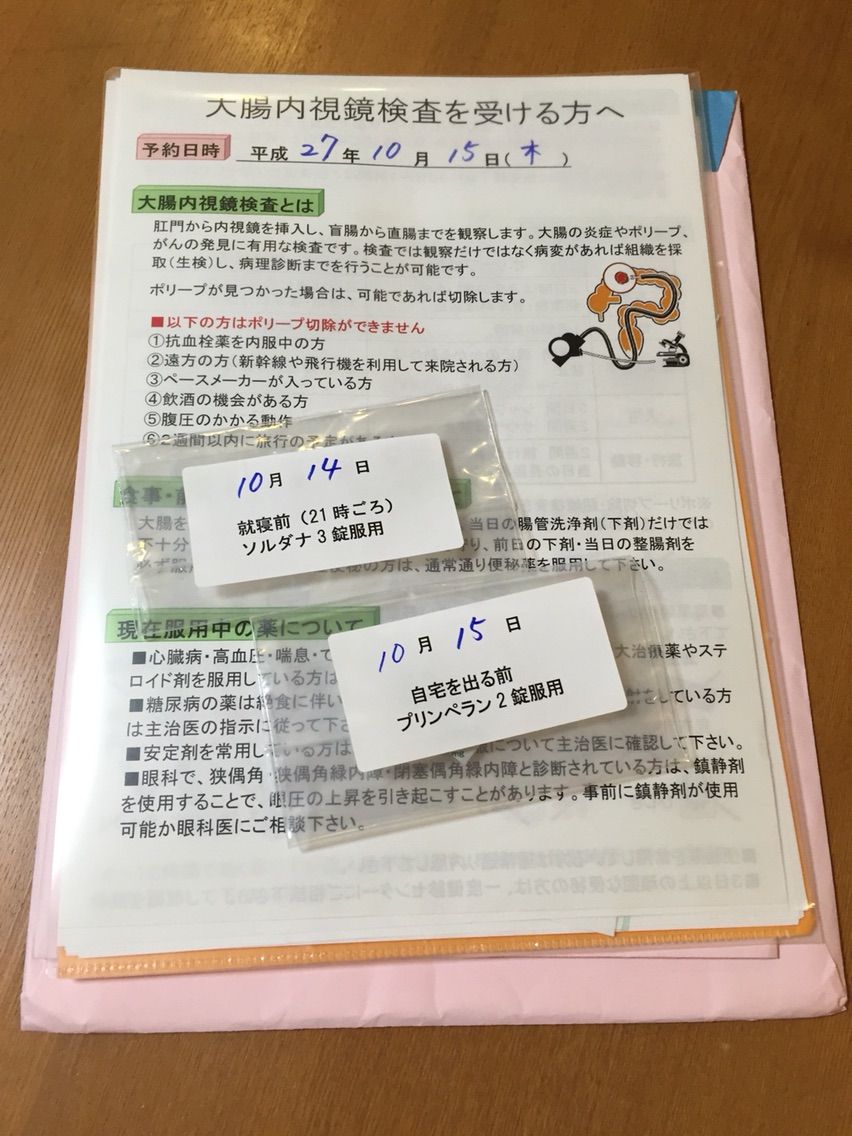 大腸内視鏡検査を受ける方へ
予約日時 平成 27年 10月 15日(木)
大腸内視鏡検査とは
肛門から内視鏡を挿入し、盲腸から直腸までを観察します。大腸の炎症やポリープ、
がんの発見に有用な検査です。検査では観察だけではなく病変があれば組織を採
取(生検)し、病理診断までを行うことが可能です。
ポリープが見つかった場合は、可能であれば切除します。
■以下の方はポリープ切除ができません
①抗血栓薬を内服中の方
②遠方の方(新幹線や飛行機を利用して来院される方)
③ペースメーカーが入っている方
④飲酒の機会がある方
⑤腹圧のかかる動作
⑥2週間以内に旅行の予定がある
10月 14日
就寝前(21時ごろ)
ソルダナ3錠服用
食事・
大腸を 当日の腸管洗浄剤(下剤)だけでは
不十分 り、前日の下剤・当日の整腸剤を
必ず服用 便秘の方は、通常通り便秘薬を服用して下さい。
現在服用中の薬について
10月 15日
自宅を出る前
プリンペラン2錠服用
■心臓病・高血圧・喘息・て 大治療薬やステ
ロイド剤を服用している方は
■糖尿病の薬は絶食に伴い をしている方
は主治医の指示に従って下さ
■安定剤を常用している方は について主治医に確認して下さい。
■眼科で、狭偶角・狭偶角緑内障・閉塞偶角緑内障と診断されている方は、鎮静剤
を使用することで、眼圧の上昇を引き起こすことがあります。事前に鎮静剤が使用
可能か眼科医にご相談下さい。